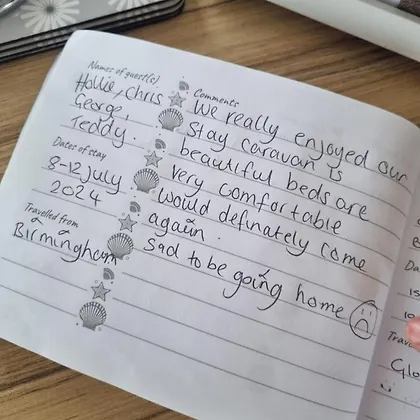 Names of guest(s)
Hollie, Chris
George,
Teddy.
Dates of stay
8-12 July
2024
Travelled from
Birmingham
Comments
We really enjoyed our
stay caravan is
beautiful beds are
very comfortable
would definately come
again.
Sad to be going home
Da
15
10
Trave
Glo